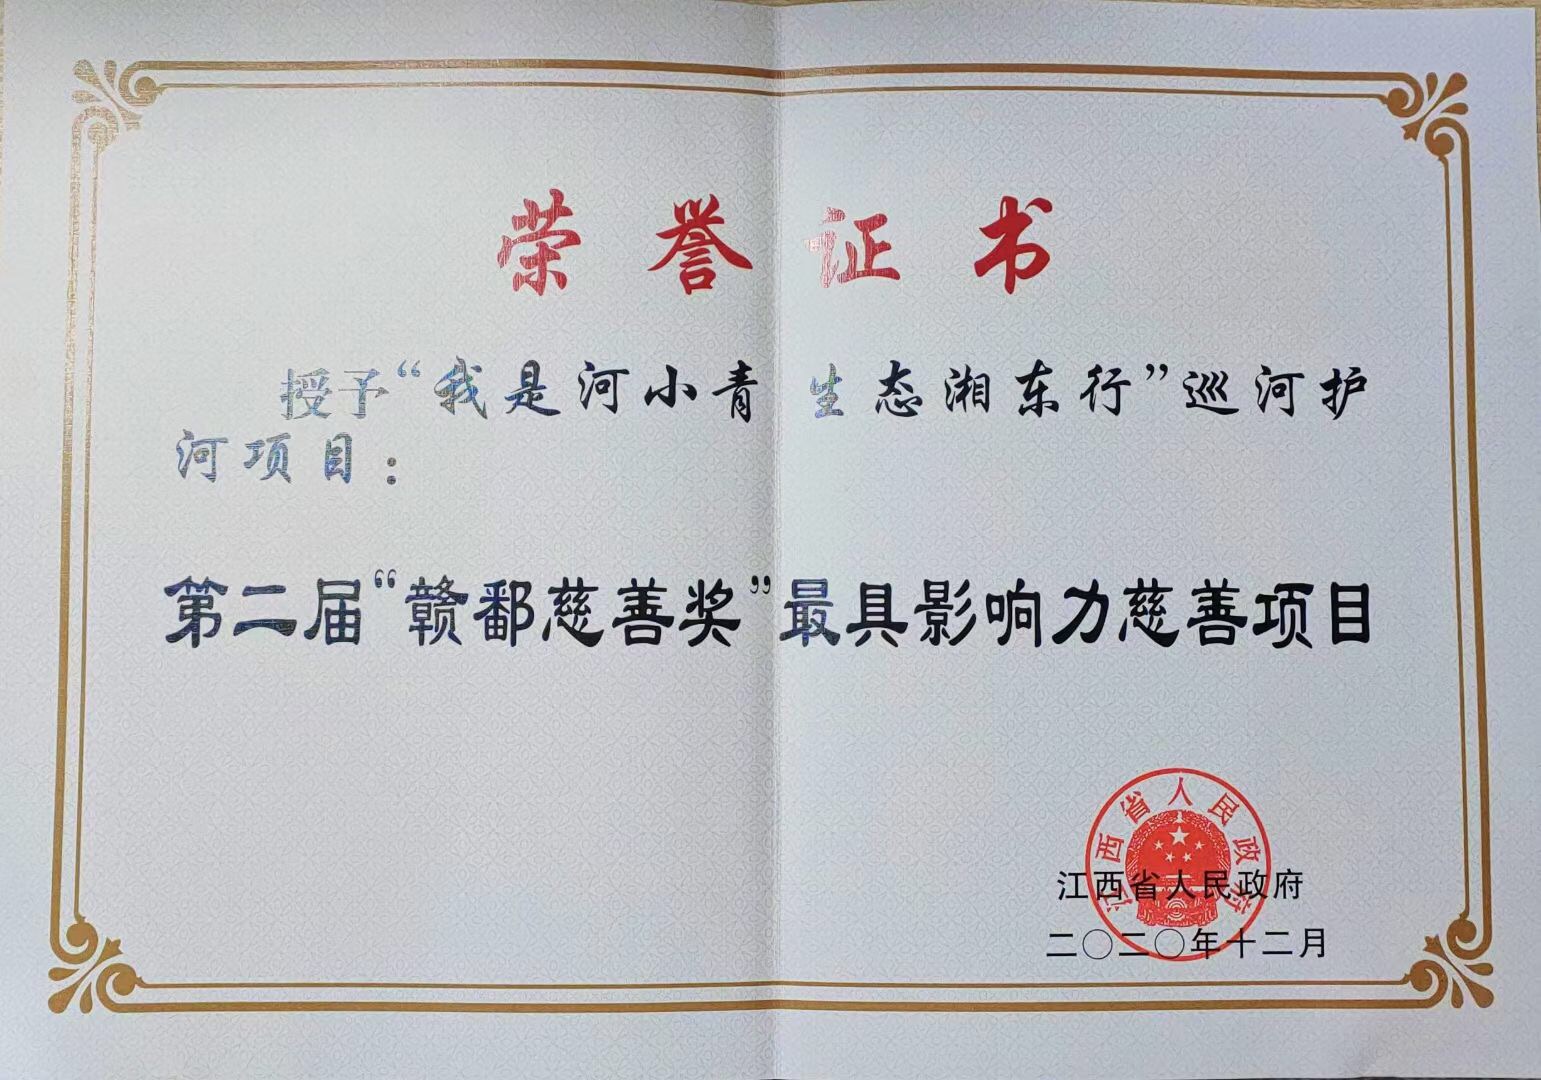 荣誉证书
授予“我是河小青 生态湘东行”巡河护
河项目：
第二届“赣鄱慈善奖”最具影响力慈善项目
江西省人民政府
江西省人民政府
二〇二〇年十二月